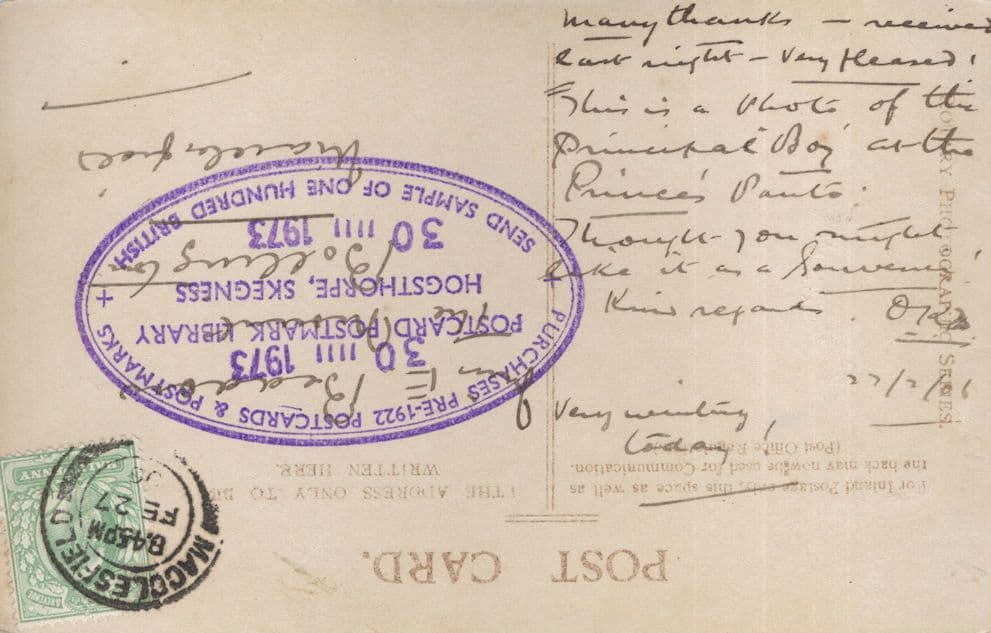 many thanks – received
last night – Very Pleased!
This is a Photo of the
Principal Boy at the
Princes Panto:
Thought you might
like it as a Souvenir!
Kind regards
27/2/06
Very wintry
today!
POST CARD.
For Inland Postage only, this space as well as
the back may now be used for Communication.
(Post Office Regulation)
(THE ADDRESS ONLY TO BE
WRITTEN HERE.
ROTARY PHOTOGRAPHIC SERIES.
MACCLESFIELD
8.45PM
FE 27
06
PURCHASES PRE-1922 POSTCARDS & POSTMARKS
30 1973
POSTCARD POSTMARK LIBRARY
HOGSTHORPE, SKEGNESS
30 1973
SEND SAMPLE OF ONE HUNDRED BRITISH
The
Bollington